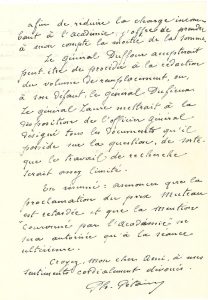 afin de réduire la charge incom-
bant à l'académie, j'offre de prendre
à mon compte la moitié de la somme
Le général Duffour accepterait
peut être de procéder à la rédaction
du volume de remplacement, ou,
à son défaut, le général Dufieux.
Le général Laure mettrait à la
disposition de l'officier général
désigné tous les documents qu'il
possède sur la question, de sorte
que le travail de recherche
serait assez limité.
En résumé: annoncer que la
proclamation du prix Muteau
est retardée et que la mention
Couronné par l'Académie ne
sera autorisée qu'à la séance
ultérieure.
Croyez, mon cher ami, à mes
sentiments cordialement dévoués.
Ph. Pétain